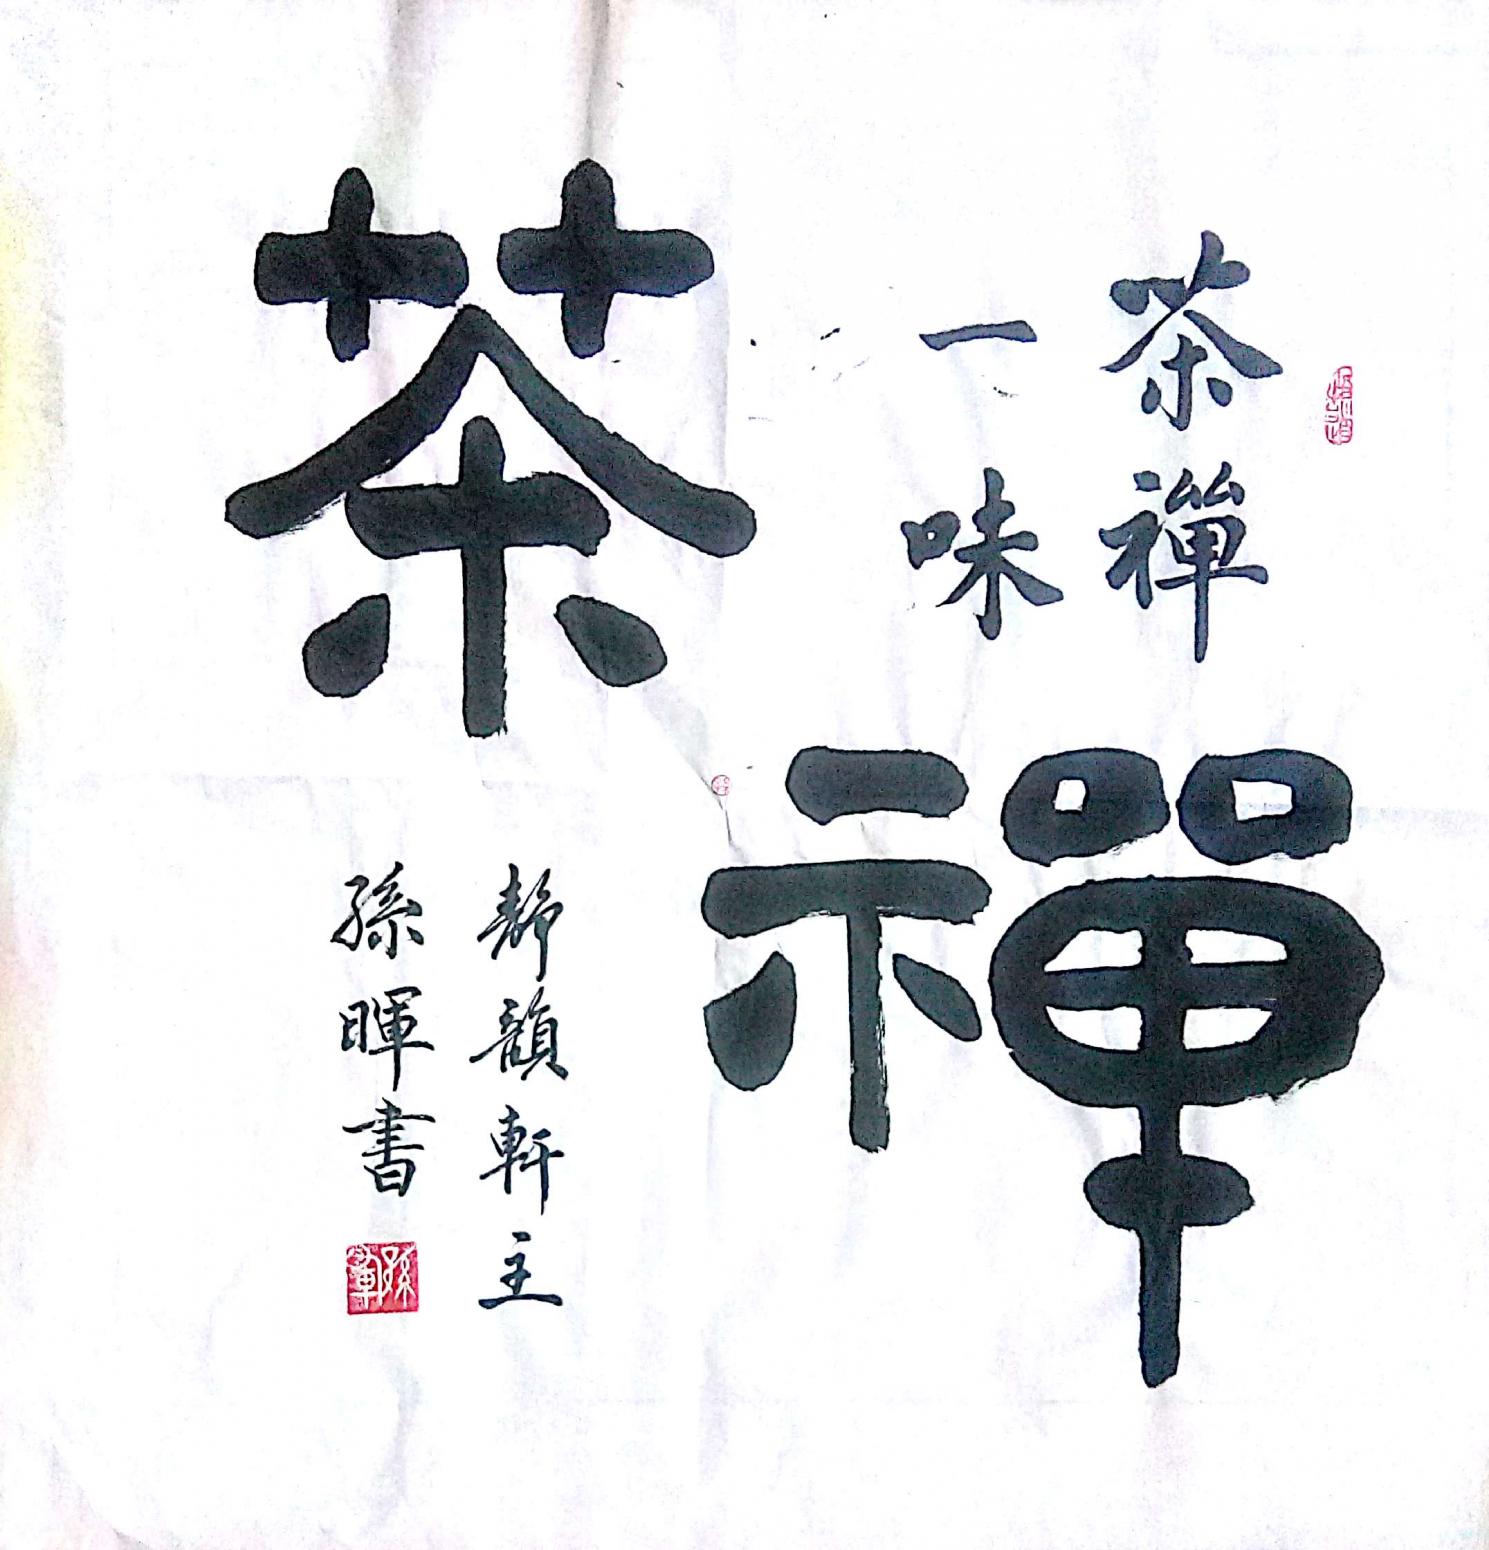 茶禪
一味
禪
茶
靜韻軒主
孫暉書
孫暉